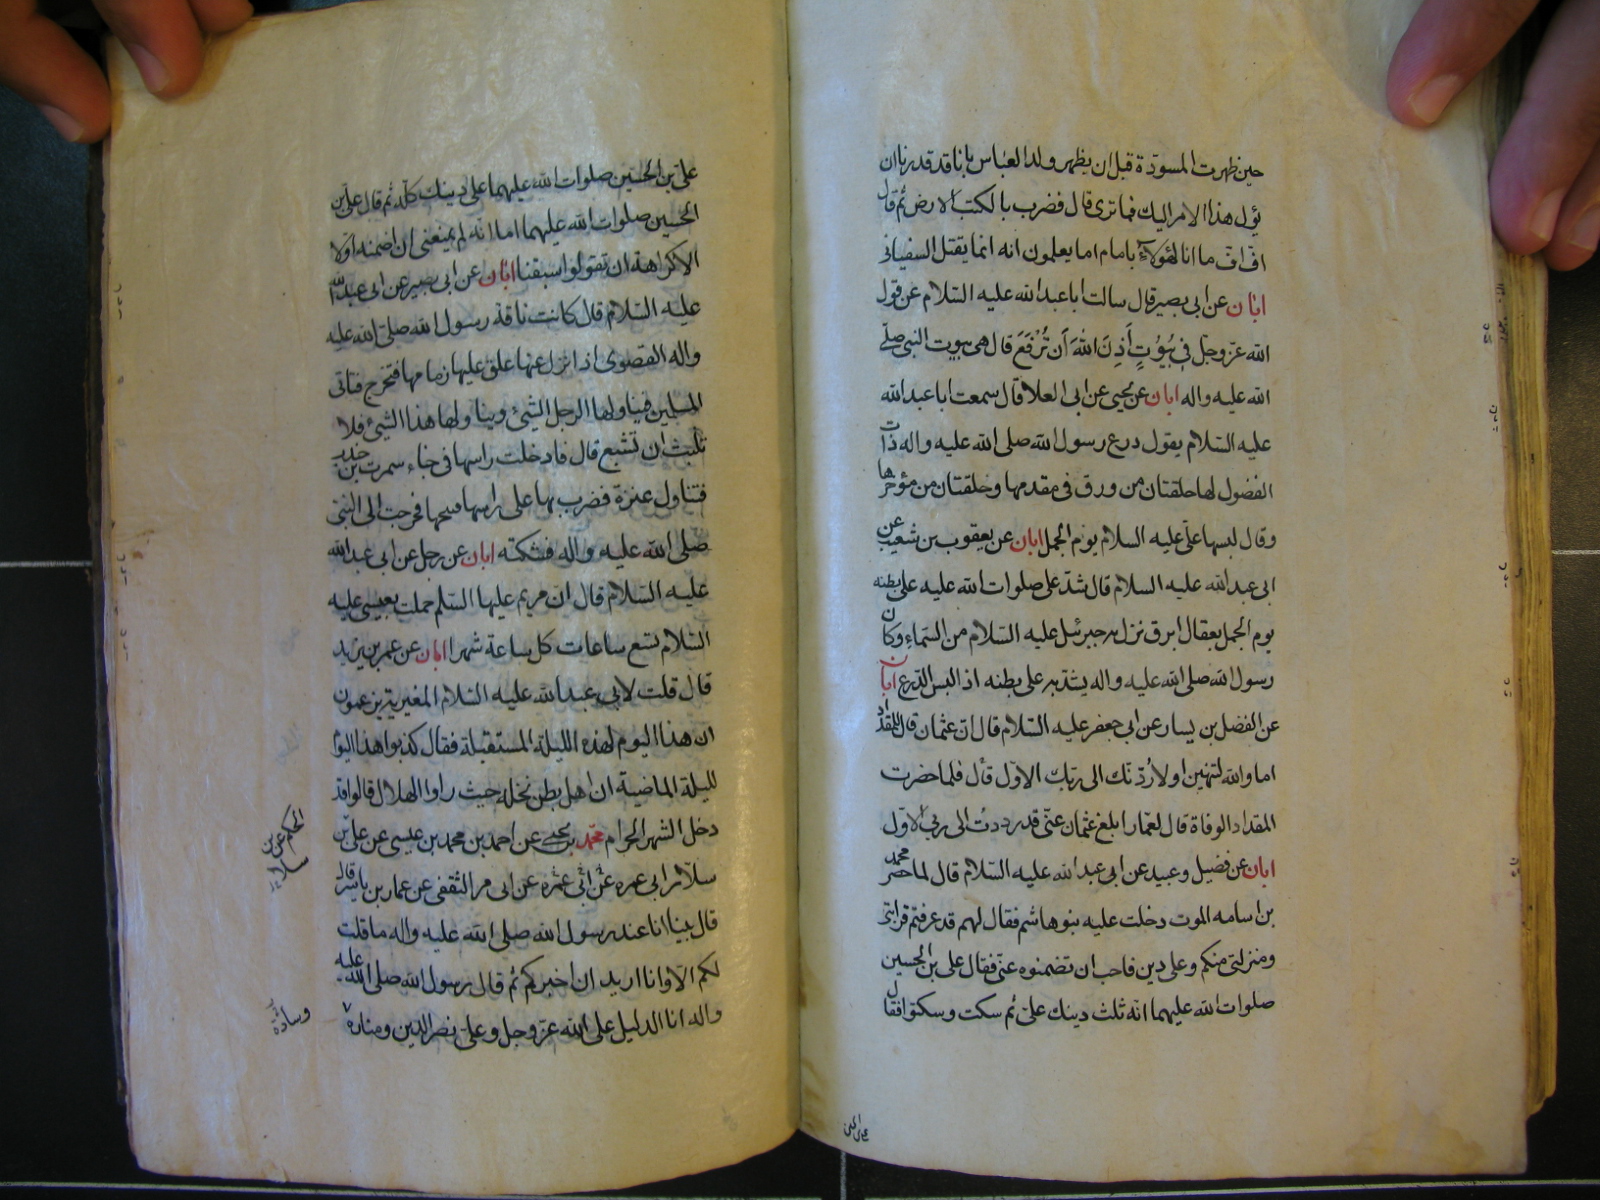 حين ظهرت المسودّة قبل ان يظهر ولد العباس بانا قد قدرنا ان
يؤل هذا الامر اليك فما ترى قال فضرب بالكتب الارض ثم قال
افّ افّ ما انا لهؤلاء بامام اما يعلمون انه انما يقتل السفيانى
ابان عن ابى بصير قال سالت ابا عبد الله عليه السلام عن قول
الله عزّ وجلّ فى بُيُوتٍ أَذِنَ اللهُ أَن تُرْفَعَ قال هى بيوت النبى صلّى
الله عليه واله ابان عن يحيى عن ابى العلا قال سمعت ابا عبد الله
عليه السلام يقول درع رسول الله صلى الله عليه واله ذات
الفضول لها حلقتان من ورق فى مقدمها وحلقتان من مؤخرها
وقال لبسها علىّ عليه السلام يوم الجمل ابان عن يعقوب بن شعيب عن
ابى عبد الله عليه السلام قال شدّ على صلوات الله عليه على بطنه
يوم الجمل بعقال ابرق نزل به جبرئيل عليه السلام من السّماء وكان
رسول الله صلى الله عليه واله يشدّ به على بطنه اذا لبس الدّرع ابان
عن الفضل بن يسار عن ابى جعفر عليه السلام قال انّ عثمان قال للمقداد
اما والله لتنتهين او لاردّنّك الى ربّك الاوّل قال فلما حضرت
المقداد الوفاة قال لعمّار ابلغ عثمان عنّى قد رددت الى ربى الاوّل
ابان عن فضيل وعبيد عن ابى عبد الله عليه السلام قال لما حضر محمد
بن اسامه الموت دخلت عليه بنو هاشم فقال لهم قد عرفتم قرابتى
ومنزلتى منكم وعلى دين فاحب ان تضمنوه عنّى فقال على بن الحسين
صلوات الله عليهما انّه ثلث دينك علىّ ثم سكت وسكتوا فقال
على بن الحسين
علىّ بن الحسين صلوات الله عليهما على دينك كلّه ثم قال علىّ بن
الحسين صلوات الله عليهما اما انّه لم يمنعنى ان اضمنه اوّلا
الا كراهة ان تقولوا سبقنا ابان عن ابى بصير عن ابى عبد الله
عليه السّلام قال كانت ناقة رسول الله صلى الله عليه
واله القصوى اذا نزل عنها علق عليها زمامها فتخرج فتاتى
المسلمين فيناولها الرجل الشيئ ويناولها هذا الشيئ فلا
تلبث ان تشبع قال فادخلت راسها فى خباء سمرة بن جندب
فتناول عنزة فضرب بها على راسها فشجها فخرجت الى النبى
صلى الله عليه واله فشكته ابان عن رجل عن ابى عبد الله
عليه السّلام قال انّ مريم عليها السّلم حملت بعيسى عليه
السّلام تسع ساعات كل ساعة شهرا ابان عن عمر بن يزيد
قال قلت لابى عبد الله عليه السّلام المغيرية يزعمون
ان هذا اليوم لهذه الليلة المستقبلة فقال كذبوا هذا اليوم
لليلة الماضية ان اهل بطن نخلة حيث راوا الهلال قالوا قد
دخل الشهر الحرام محمد بن يحيى عن احمد بن محمد بن عيسى عن على بن
الحكم عن بن
سلام
قال بينا انا عند رسول الله صلى الله عليه واله ما قلت
لكم الّا وانا اريد ان اخبركم ثم قال رسول الله صلى الله عليه
واله انا الدليل على الله عزّ وجل وعلىّ نصر الدين ومناره
وسادة